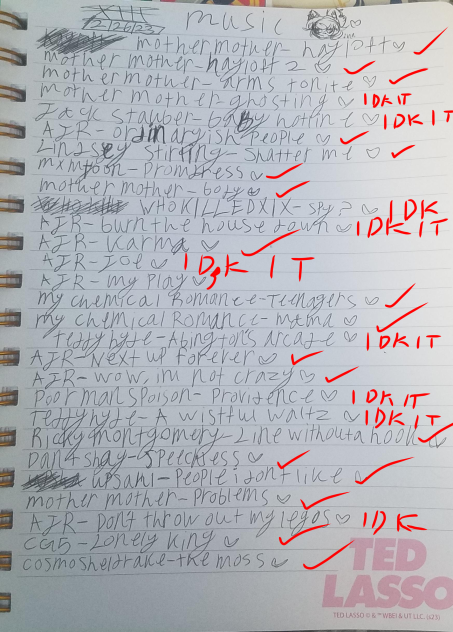 XIII music
2/26/23
mother mother- hayloft ♡ ✓
mother mother- hayloft 2 ♡ ✓
mother mother- arms tonite ♡ ✓
mother mother- ghosting ♡ IDK IT
Jack Stauber- baby hotline ♡ IDK IT
AJR- ordinaryish people ♡ ✓
Lindsey stirling- Shatter me ♡ ✓
mxmtoon- Prom dress ♡ ✓
mother mother- body ♡ ✓
WHOKILLEDXIX- spy? ♡ IDK
AJR- burn the house down ♡ IDK IT
AJR- Karma ♡ ✓
AJR- Joe ♡ IDK IT
AJR- my Play ♡ ?
my chemical Romance- Teenagers ♡ ✓
my chemical Romance- mama ♡ ✓
teddy hyde- Abington's arcade ♡ IDK IT
AJR- Next up forever ♡ ✓
AJR- wow, im not crazy ♡ ✓
Poor mans poison- Providence ♡ IDK IT
Teddy hyde- A wistful waltz ♡ IDK IT
Ricky montgomery- Line without a hook ♡ ✓
Dan + shay- Speechless ♡ ✓
upsahl- People i don't like ♡ ✓
mother mother- Problems ♡ ✓
AJR- Don't throw out my legos ♡ IDK
CG5- Lonely King ♡ ✓
cosmo sheldrake- the moss ♡ ✓
TED
LASSO
TED LASSO © & ™ WBEI & UT LLC. (s23)